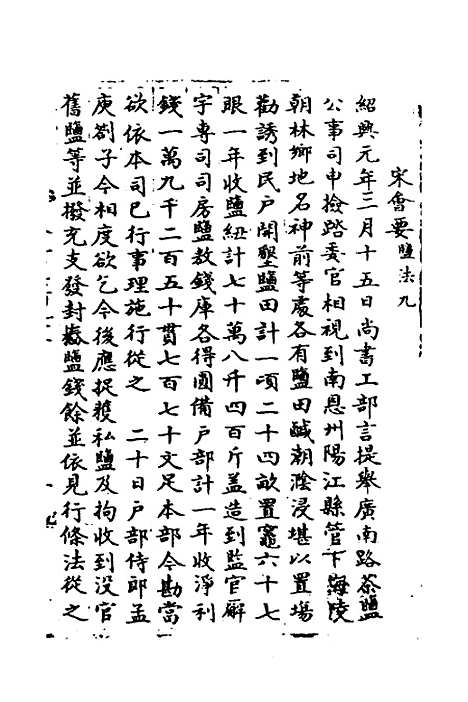 宋會要鹽法九
紹興元年三月十五日尚書工部言提舉廣南路茶鹽
公事司申撿踏委官相視到南恩州陽江縣管下海陵
朝林鄉地名神前等處各有鹽田鹹潮渰浸堪以置塲
勸誘到民戶開墾鹽田計一頃二十四畝置竈六十七
眼一年收鹽紐計七十萬八千四百斤盖造到監官廨
宇專司司房鹽敖錢庫各得圓備戶部計一年收淨利
錢一萬九千二百五十貫七百七十文足本部今勘當
欲依本司已行事理施行從之　二十日戶部侍郎孟
庾劄子今相度欲乞今後應捉獲私鹽及拘收到沒官
舊鹽等並撥充支發封樁鹽錢餘並依見行條法從之